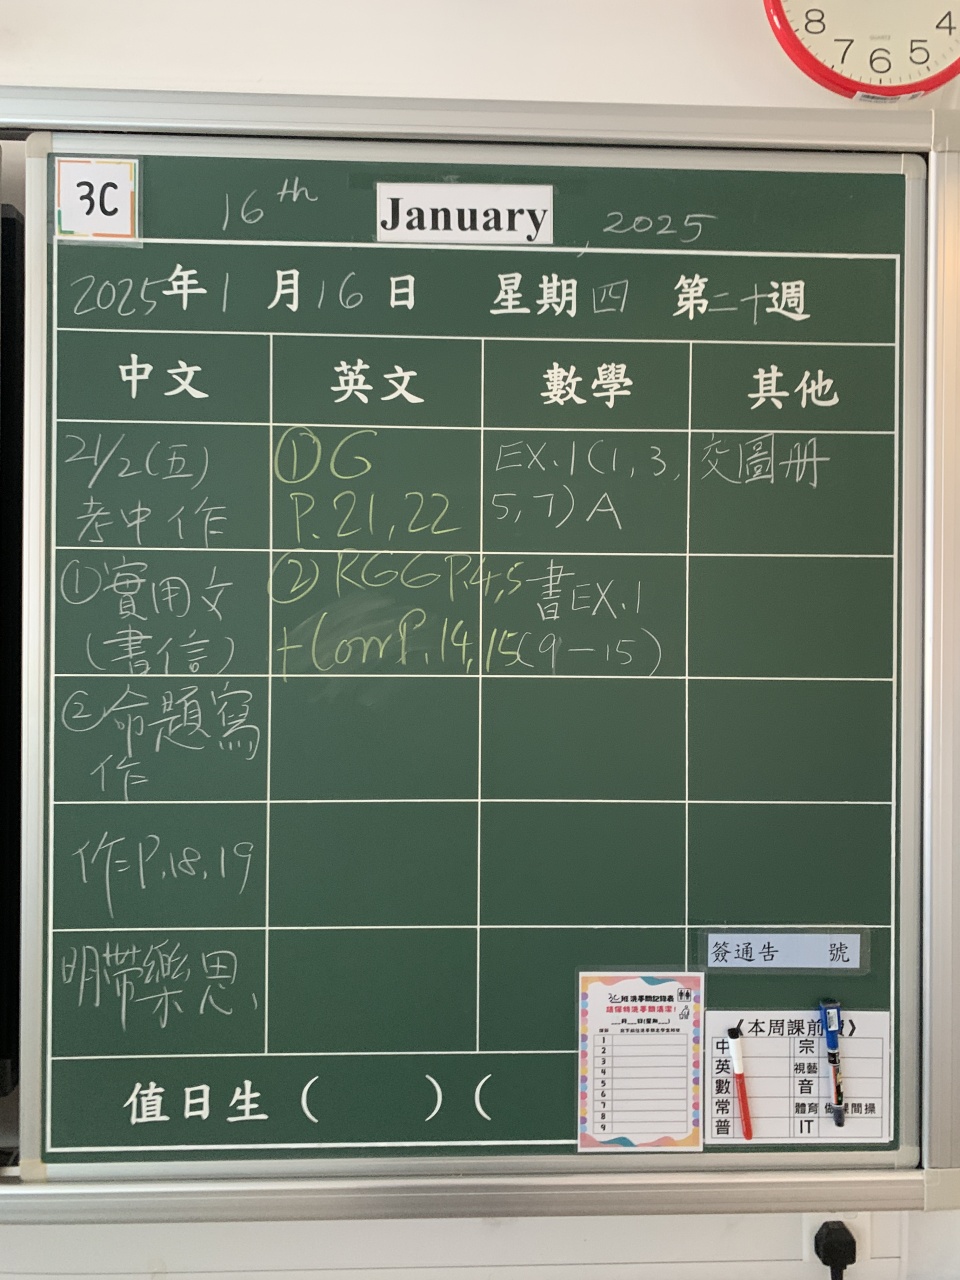 8 7 6 5 4
3C
16th January, 2025
2025年1月16日 星期四 第二十週
中文 英文 數學 其他
21/2(五)
考中作
①實用文
(書信)
②命題寫
作
作P.18,19
明帶樂思、
①G
P.21,22
②RGG P.4,5
+Corr P.14,15
EX.1(1,3,
5,7)A
書EX.1
(9-15)
交圖冊
簽通告 號
3C班洗手間記錄表
請保持洗手間清潔!
___月___日(星期___)
1
2
3
4
5
6
7
8
9
《本周課前》
中 宗
英 視藝
數 音
常 體育 課間操
普 IT
值日生( )(